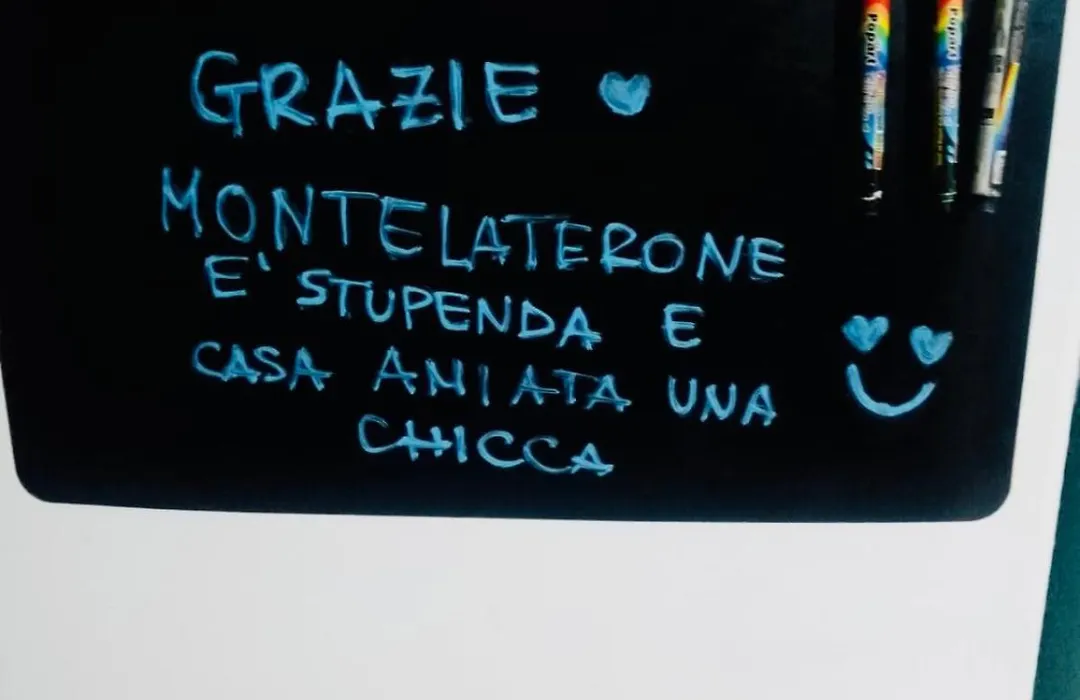 GRAZIE
MONTELATERONE
E' STUPENDA E
CASA AMIATA UNA
CHICCA
Popart
Popart